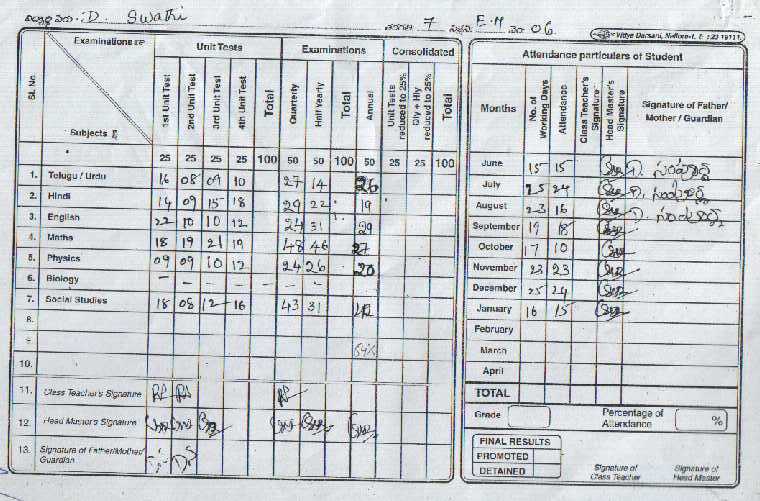 D. Swathi 7 E.M 06
Vidya Darsani, Nellore-1,
Examinations Unit Tests Examinations Consolidated
Sl. No. Subjects 1st Unit Test 2nd Unit Test 3rd Unit Test 4th Unit Test Total Quarterly Half Yearly Total Annual Unit Tests reduced to 25% Qly + Hly reduced to 25% Total
25 25 25 25 100 50 50 100 50 25 25 100
1. Telugu / Urdu 16 08 09 10 27 14 26
2. Hindi 14 09 15 18 29 22 19
3. English 22 10 10 12 24 31 29
4. Maths 18 19 21 19 48 46 27
5. Physics 09 09 10 12 24 26 20
6. Biology – – – – – –
7. Social Studies 18 08 12 16 43 31
8.
9.
10.
11. Class Teacher's Signature
12. Head Master's Signature
13. Signature of Father/Mother/ Guardian
Attendance particulars of Student
Months No. of Working Days Attendance Class Teacher's Signature Head Master's Signature Signature of Father/ Mother / Guardian
June 15 15
July 25 24
August 23 16
September 19 18
October 17 10
November 23 23
December 25 24
January 16 15
February
March
April
TOTAL
Grade Percentage of Attendance %
FINAL RESULTS
PROMOTED
DETAINED
Signature of Class Teacher Signature of Head Master